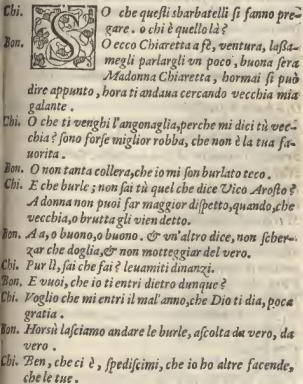 Chi. SO che queſti sbarbatelli ſi fanno pre-
gare. o chi è quello là?
Bon. O ecco Chiaretta a fè, ventura, laſſa-
megli parlargli vn poco, buona ſera
Madonna Chiaretta, hormai ſi può
dire appunto, hora ti andaua cercando vecchia mia
galante.
Chi. O che ti venghi l'angonaglia, perche mi dici tù vec-
chia? ſono forſe miglior robba, che non è la tua fa-
uorita.
Bon. O non tanta collera, che io mi ſon burlato teco.
Chi. E che burle; non ſai tù quel che dice Vico Aroſto?
A donna non puoi far maggior diſpetto, quando, che
vecchia, o brutta gli vien detto.
Bon. A a, o buono, o buono. & vn'altro dice, non ſcher-
zar che doglia, & non motteggiar del vero.
Chi. Pur lì, ſai che fai? leuamiti dinanzi.
Bon. E vuoi, che io ti entri dietro dunque?
Chi. Voglio che mi entri il mal'anno, che Dio ti dia, poca
gratia.
Bon. Horsù laſciamo andare le burle, aſcolta da vero, da
vero.
Chi. Ben, che ci è, ſpediſcimi, che io ho altre facende,
che le tue.